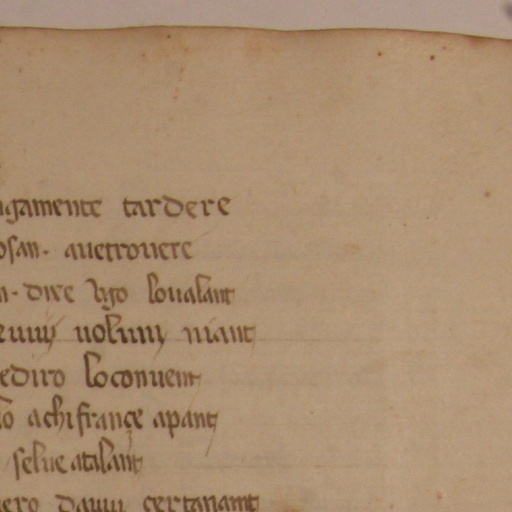 gamente tardere
osan. auetrouere
n. dire Vgo loualant
uolunt niant
ediro loconuent
lo achi france apant
selue atalant
ero dauui certanamt